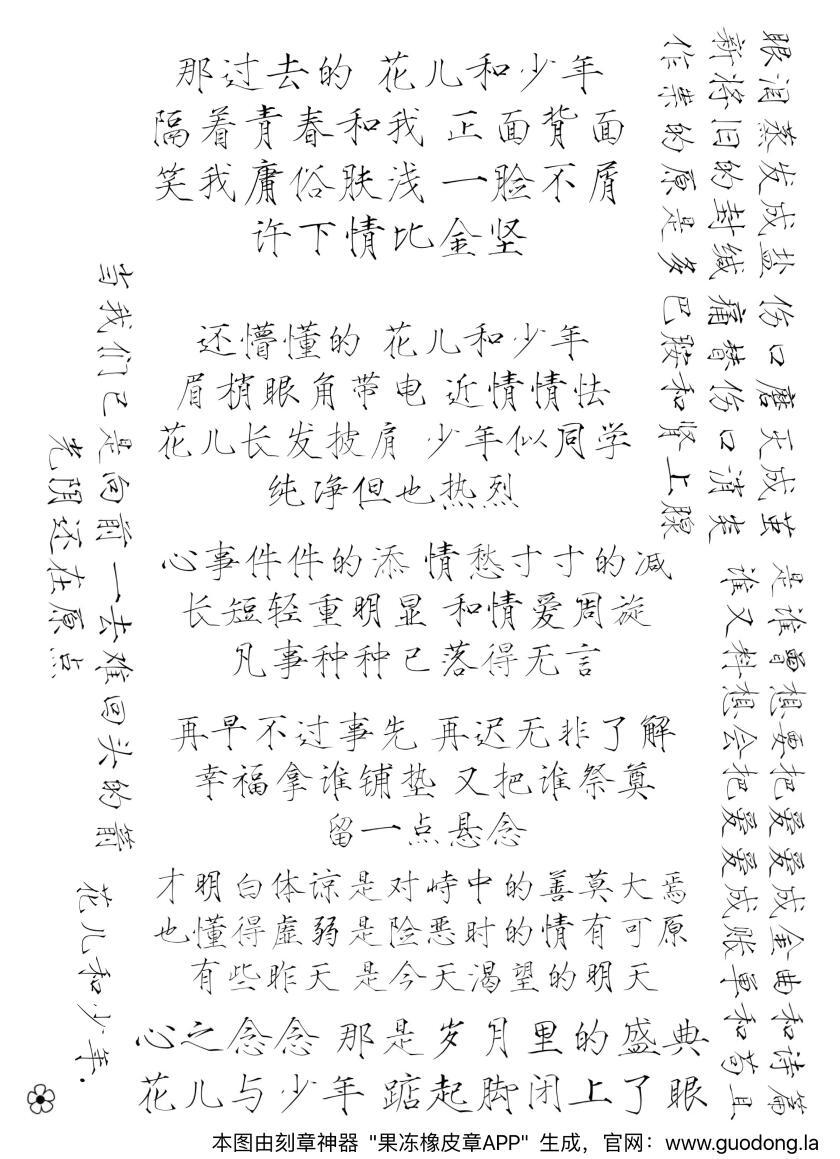 那过去的 花儿和少年
隔着青春和我 正面背面
笑我庸俗肤浅 一脸不屑
许下情比金坚
还懵懂的 花儿和少年
眉梢眼角带电 近情情怯
花儿长发披肩 少年似同学
纯净但也热烈
心事件件的添 情愁寸寸的减
长短轻重明显 和情爱周旋
凡事种种已落得无言
再早不过事先 再迟无非了解
幸福拿谁铺垫 又把谁祭奠
留一点悬念
才明白体谅是对峙中的善莫大焉
也懂得虚弱是险恶时的情有可原
有些昨天 是今天渴望的明天
心之念念 那是岁月里的盛典
花儿与少年 踮起脚闭上了眼
眼泪蒸发成盐 伤口磨天成茧
新将旧的封缄 痛替伤口消失
作祟的原是多巴胺和肾上腺
是谁曾想要把爱爱成金曲和诗篇
谁又料想会把爱爱成账单和苟且
当我们已是向前一去难回头的箭
光阴还在原点
花儿和少年.
本图由刻章神器 "果冻橡皮章APP" 生成，官网：www.guodong.la